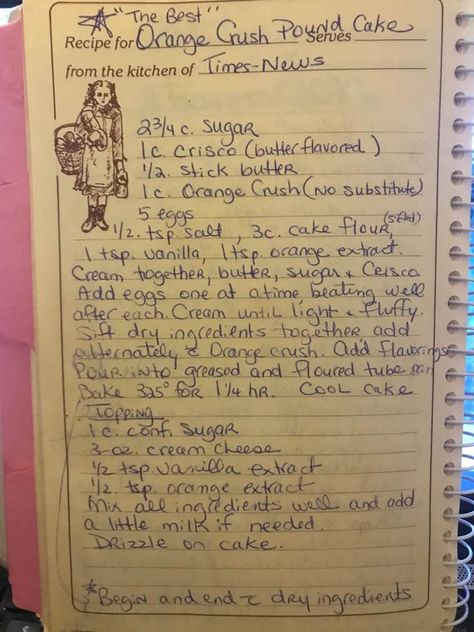 ☆ "The Best"
Recipe for Orange Crush Pound Cake Serves
from the kitchen of Times-News
2 3/4 c. Sugar
1 c. Crisco (butter flavored)
1/2. stick butter
1 c. Orange Crush (No substitute)
5 eggs
1/2. tsp. salt, 3c. cake flour, (sifted)
1 tsp. vanilla, 1 tsp. orange extract.
Cream together, butter, sugar & Crisco.
Add eggs one at a time beating well
after each. Cream until light & fluffy.
Sift dry ingredients together add
alternately c̄ Orange crush. Add flavorings
Pour into greased and floured tube pan
Bake 325° for 1 1/4 hr. Cool Cake
Topping
1 c. conf. Sugar
3-oz. cream cheese
1/2 tsp. vanilla extract
1/2. tsp. orange extract
Mix all ingredients well and add
a little milk if needed.
Drizzle on cake.
*Begin and end c̄ dry ingredients